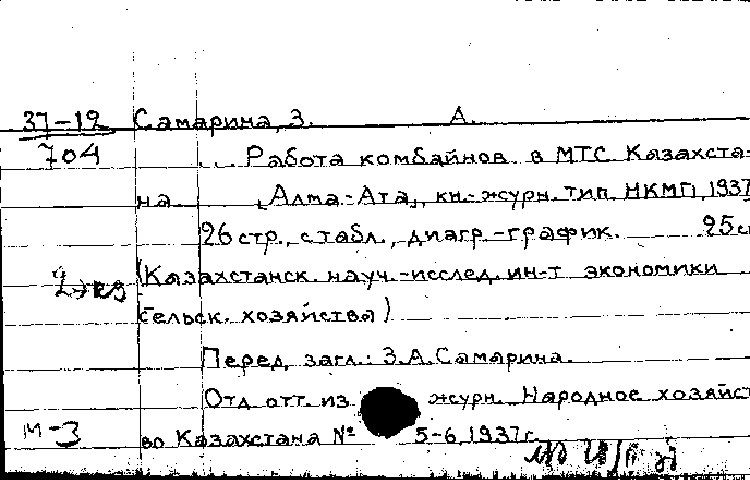 37-12 Самарина, З. А.
704 ... Работа комбайнов в МТС Казахста-
на Алма-Ата, кн.-журн. тип. НКМП, 1937
26 стр., с табл., диагр.-график. 25 с
2 экз (Казахстанск. науч.-исслед. ин-т экономики
сельск. хозяйства)
Перед загл.: З.А. Самарина.
Отд. отт. из журн. Народное хозяйст
м-3 во Казахстана № 5-6, 1937г.